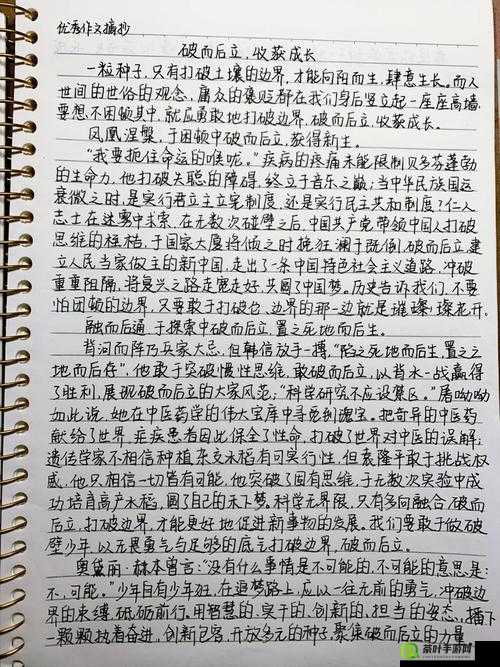 优秀作文摘抄
破而后立,收获成长
一粒种子,只有打破土壤的边界,才能向阳而生,肆意生长。而人
世间的世俗的观念,庸众的集贬都在我们身后竖立起一座座高墙,
要想不困顿其中,就应勇敢地打破边界,破而后立,收获成长。
凤凰涅槃,于困顿中破而后立,获得新生。
“我要扼住命运的喉咙。”疾病的疼痛未能限制贝多芬蓬勃
的生命力,他打破失聪的障碍,终立于音乐之巅;当中华民族国运
衰微之时,是实行君立主立宪制度,还是实行民主共和制度?仁人
志士在迷雾中求索,在无数次碰壁之后,中国共产党带领中国人打破
思维的桎梏,于国家大厦将倾之时挽狂澜于既倒,破而后立,建
立人民当家做主的新中国,走出了一条中国特色社会主义道路,冲破
重重阻隔,将复兴之路走宽走好,共圆了中国梦。历史告诉我们,不要
怕困顿的边界,只要敢于打破它,边界的那一边就是璀璨,璨花开。
融而后通,于探索中破而后立,置之死地而后生。
背河而阵乃兵家大忌,但韩信放手一搏,“陷之死地而后生,置之亡
地而后存”,他敢于突破惯性思维,敢破而后立,以背水一战赢得
了胜利,展现破而后立的大家风范;“科学研究不应设禁区。”屠呦呦
如此说,她在中医药学的伟大宝库中寻觅到瑰宝。把奇异的中医药
献给了世界,疟疾患者因此保全了性命,打破了世界对中医的误解;
遗传学家不相信种植杂交水稻有可实行性,但袁隆平敢于挑战权
威,他只相信一切皆有可能,他突破了固有思维,于无数次实验中成
功培育高产水稻,圆了自己的禾下梦。科学无界限,只有多向融合,破而
后立,打破边界,才能更好地促进新事物的发展,我们要敢于做破
壁少年,以无畏勇气与足够的底气打破边界,破而后立。
奥黛丽·赫本曾言:“没有什么事情是不可能的,不可能的意思是:
不,可能。”少年自有少年狂,在追梦路上,应以一往无前的勇气,冲破边
界的束缚,砥砺前行,用智慧的,实干的,创新的,担当的姿态,播下
一颗颗执着奋进,创新包容,开放多元的种子,聚集破而后立的力量
茶叶手游网